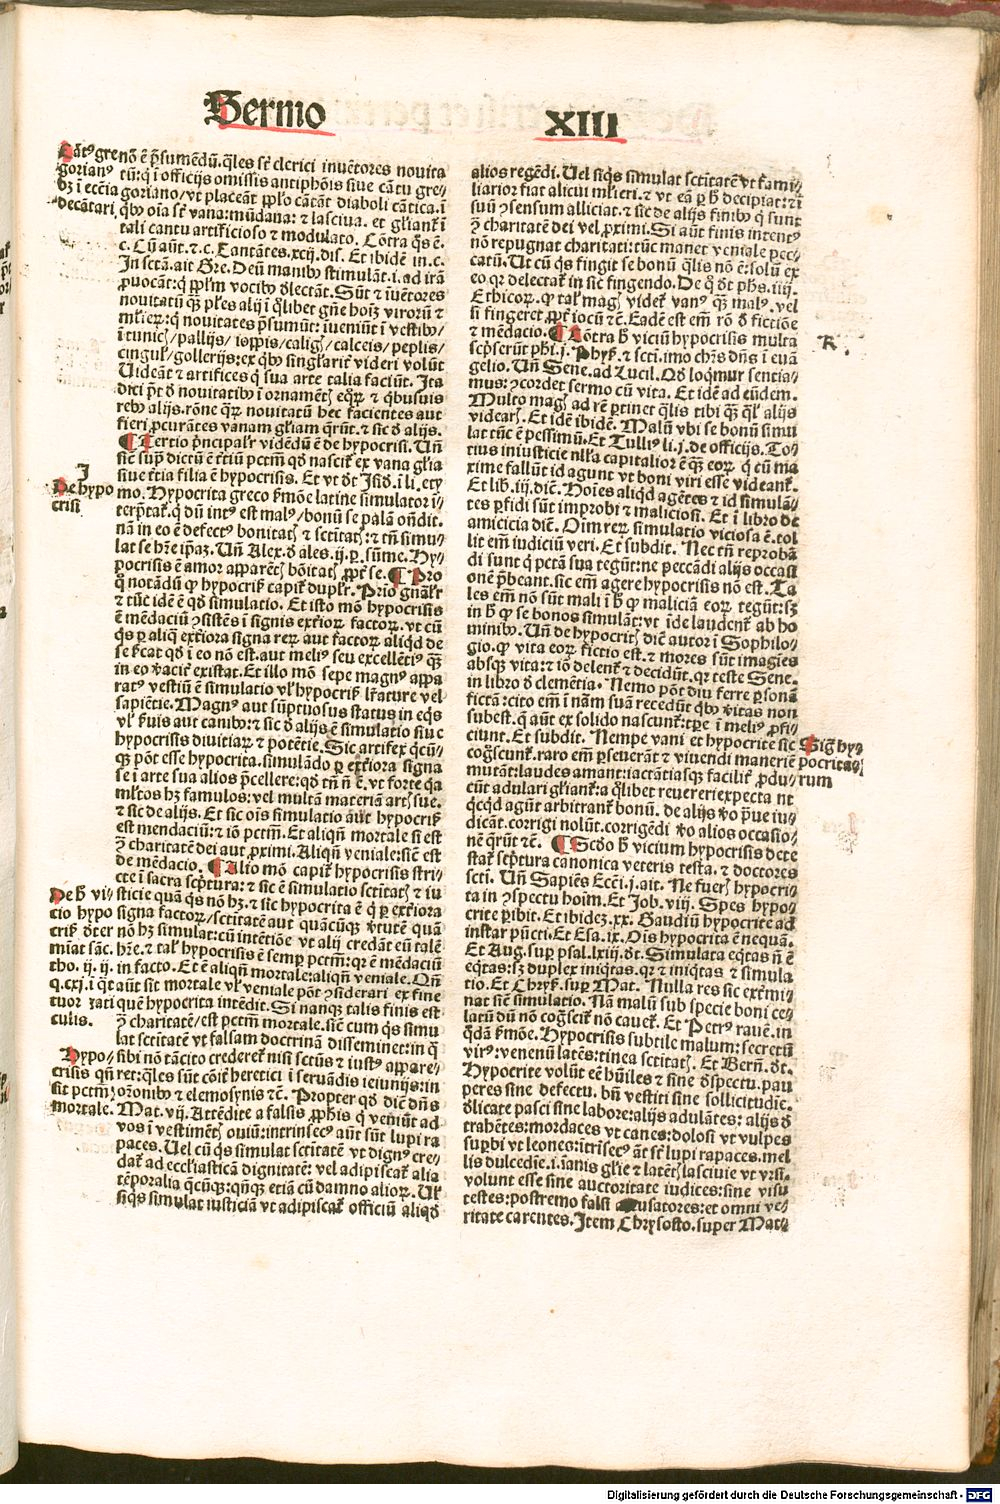 Sermo XIII
Cātꝰ gre
gorianꝰ
hʒ ī ecc̄ia
decātari
nō ē p̄sumēdū. q̄les sr̄t clerici inuētores nouita
tū: q̇ ī officijs omissis antiphōis siue cātu gre/
goriano/vt placeāt pplo cātāt diaboli cātica. ī
qbꝰ oīa sr̄t vana: mūdana: ⁊ lasciua. et gliant̄ ī
tali cantu artificioso ⁊ modulato. Cōtra q̄s ē.
c. Cū aūt. ⁊ c. Cantātes. xcij. dis. Et ibidē in. c.
In sctā. ait Gre. Deū manibꝰ stimulāt. i. ad irā
ꝓuocāt: q̇ pplm vocibꝰ dlectāt. Sūt ⁊ īuētores
nouitatū qꝫ ples alij ī q̄libet gn̄e hoīʒ viroꝝ ⁊
ml̄ieꝝ: q̇ nouitates p̄sumūt: īueniūt ī vestibꝰ/
ī tunicꝭ/pallijs/ioppis/caligꝭ/calceis/peplis/
cingulꝭ/gollerijs: ex qbꝰ singlarit̄ videri volūt
Uideāt ⁊ artifices q̇ sua arte talia faciūt. Ita
dici pt̄ d nouitatibꝰ ī ornamētꝭ eqꝝ ⁊ q̇busuis
rebꝰ alijs. rōne qꝝ nouitatū hec facientes aut
fieri ꝓcurātes vanam gliam q̄rūt. ⁊ sic d alijs.
¶ Tertio pncipalr̄ vidēdū ē de hypocrisi. Un̄
sic̄ supͣ dictū ē t̄tiū pctm̄ qd nascit̄ ex vana glia
I
De hypo
crisi
siue t̄tia filia ē hypocrisis. Et vt dt̄ Isid. ī li. ety
mo. Hypocrita greco s̄mōe latine simulator ī/
terp̄tat̄. q dū intꝰ est malꝰ/bonū se palā on̄dit.
nā in eo ē defectꝰ bonitatꝭ ⁊ sctitatꝭ: ⁊ tn̄ simu/
lat se hr̄e ip̄aʒ. Un̄ Alex. d ales. ij. p. sūme. Hy/
pocrisis ē amor apparētꝭ bōitatꝭ ꝓpt̄ se. ¶ Pro
q̊ notādū ꝙ hypocrisꝭ capit̄ duplr̄. Prio gn̄alr̄
⁊ tūc idē ē qd simulatio. Et isto mō hypocrisis
ē mēdaciū ꝯsistēs ī signis ext̄ioꝝ factoꝝ. vt cū
q̇s ꝑ aliq̄ ext̄iora signa reꝝ aut factoꝝ aliqd de
se s̄icat qd ī eo nō est. aut meliꝰ seu excellētiꝰ qꝫ
in eo vacit̄ existat. Et illo mō sepe magnꝰ appa
ratꝰ vestiū ē simulatio vl̄ hypocrisꝭ lr̄ature vel
sapiētie. Magnꝰ aut sūptuosus status in eq̇s
vl̄ s̄uis aut canibꝰ: ⁊ sic d alijs ē simulatio siue
hypocrisis diuitiaꝝ ⁊ potētie. Sic artifex q̇cū/
qꝫ pōt esse hypocrita. simulādo ꝑ ext̄iora signa
se ī arte sua alios p̄cellere: qd tn̄ n̄ ē. vt forte qa
ml̄tos hʒ famulos: vel multā materiā artꝭ sue.
⁊ sic de alijs. Et sic oīs simulatio aūt hypocrisꝭ
est mendaciū: ⁊ iō pctm̄. Et aliqn̄ mortale si est
ꝯ charitatē dei aut ꝓximi. Aliqn̄ veniale: sic̄ est
de mēdacio. ¶ Alio mō capit̄ hypocrisis stri/
cte ī sacra scptura: ⁊ sic ē simulatio sctitatꝭ ⁊ iu
De h̄ vi/
cio hypo
crisꝭ dter
miat sāc.
tho. ij. ij.
q. cxj. ī q̇t
tuor arti
culis.
sticie quā q̇s nō hʒ. ⁊ sic hypocrita ē q̇ ꝑ ext̄iora
signa factoꝝ/sctitatē aut quācūqꝫ v̄tutē quā
nō hʒ simulat: cū intētiōe vt alij credāt eū talē
hr̄e. ⁊ tal̄ hypocrisis ē semꝑ pctm̄: qꝛ ē mēdaciū
in facto. Et ē aliqn̄ mortale: aliqn̄ veniale. Qn̄
aūt sit mortale vl̄ veniale pōt ꝯsiderari ex fine
quē hypocrita intēdit. Si nanqꝫ talis finis est
ꝯ charitatē/est pctm̄ mortale. sic̄ cum q̇s simu
lat sctitatē vt falsam doctrinā disseminet: in q̊
Hypo/
crisis qn̄
sit pctm̄
mortale.
sibi nō tācito crederet̄ nisi sctūs ⁊ iustꝰ appare/
ret: q̄les sūt cōit̄ heretici ī seruādis ieiunijs: in
or̄onibꝰ ⁊ elemosynis ⁊c̄. Propter qd dic̄ dn̄s
Mat. vij. Attēdite a falsis ꝓphis q̇ veniūt ad
vos ī vestimētꝭ ouiū: intrinsecꝰ aūt sūt lupi ra
paces. Uel cū q̇s simulat sctitatē vt dignꝰ cre/
dat̄ ad eccliasticā dignitatē: vel adipiscat̄ alia
tēporalia q̄cūqꝫ: qn̄qꝫ etiā cū damno alioꝝ. Ul̄
siq̇s simulat iusticiā vt adipiscat̄ officiū aliqd
alios regēdi. Uel siq̇s simulat sctitatē vt fami/
liarior fiat alicui ml̄ieri. ⁊ vt eā ꝑ h̄ decipiat: ⁊ ī
suū ꝯsensum alliciat. ⁊ sic de alijs finibꝰ q̇ sunt
ꝯ charitatē dei vel ꝓximi. Si aūt finis intentꝰ
nō repugnat charitati: tūc manet veniale pec/
catū. Ut cū q̇s fingit se bonū q̄lis nō ē: solū ex
eo qꝛ delectat̄ in sic fingendo. De q̊ dt̄ phs. iiij.
Ethicoꝝ. ꝙ tal̄ magꝭ videt̄ vanꝰ qꝫ malꝰ. vel
si fingeret ꝓpt̄ iocū ⁊c̄. Eadē est em̄ rō d fictiōe
⁊ mēdacio. ¶ Cōtra h̄ viciū hypocrisis multa
K.
scpserūt phi. j. Phys̄. ⁊ scti. imo chrs dn̄s ī euā
gelio. Un̄ Sene. ad Lucil. Qd loqmur sentia/
mus: ꝯcordet sermo cū vita. Et idē ad eūdem.
Multo magꝭ ad rē ꝑtinet q̄lis tibi qꝫ ql̄ alijs
videarꝭ. Et idē ibidē. Malū vbi se bonū simu
lat tūc ē pessimū. Et Tulliꝰ li. j. de officijs. To/
tius iniusticie nlla capitalior ē qꝫ eoꝝ q̇ cū ma
xime fallūt id agunt vt boni viri esse videant̄.
Et lib. iij. dic̄. Hoīes aliqd agētes ⁊ id simulā/
tes ꝑfidi sūt improbi ⁊ maliciosi. Et ī libro de
amicicia dic̄. Oīm reꝝ simulatio viciosa ē. tol
lit em̄ iudiciū veri. Et subdit. Nec tn̄ reprobā
di sunt q̇ pctā sua tegūt: ne peccādi alijs occasi
onē p̄beant. sic em̄ agere hypocrisis nō est. Ta
les em̄ nō sūt mali ī h̄ ꝙ maliciā eoꝝ tegūt: sʒ
in h̄ ꝙ se bonos simulāt: vt ide laudent̄ ab ho
minibꝰ. Un̄ de hypocritꝭ dic̄ autor ī Sophilo/
gio. ꝙ vita eoꝝ fictio est. ⁊ mores sūt imagīes
absqꝫ vita: ⁊ iō delent̄ ⁊ decidūt. qꝛ teste Sene.
in libro d clemētia. Nemo pōt diu ferre ꝑsonā
fictā: cito em̄ ī nām suā recedūt qbꝰ v̄itas non
subest. q̄ aūt ex solido nascunt̄: tp̄e ī meliꝰ ꝓfi/
ciunt. Et subdit. Nempe vani et hypocrite sic
Sigꝭ hy/
pocrita/
rum
cogscunt̄. raro em̄ ꝑseuerāt ⁊ viuendi maneriē
mutāt: laudes amant: iactātiasqꝫ facilit̄ ꝓdu/
cūt adulari gliant̄: a q̇libet reuereri expectant
q̇cqd agūt arbitrant̄ bonū. de alijs v̊o p̄ue iu/
dicāt. corrigi nolūt. corrigēdi v̊o alios occasio/
nē q̄rūt ⁊c̄. ¶ Scdo h̄ vicium hypocrisis dete
stat̄ scptura canonica veteris testa. ⁊ doctores
scti. Un̄ Sapiēs Ecc̄i. j. ait. Ne fuerꝭ hypocri/
ta in ꝯspectu hoīm. Et Job. viij. Spes hypo/
crite ꝑibit. Et ibidez. xx. Gaudiū hypocrite ad
instar pūcti. Et Esa. ix. Ois hypocrita ē nequā.
Et Aug. suꝑ psal. lxiij. dt̄. Simulata eq̇tas n̄ ē
eq̇tas: sʒ duplex iniq̇tas. qꝛ ⁊ iniq̇tas ⁊ simula
tio. Et Chrys̄. suꝑ Mat. Nulla res sic ext̄mi/
nat sic̄ simulatio. Nā malū sub specie boni ce/
latū dū nō cogscit̄ nō cauet̄. Et Petrꝰ rauē. in
q̇dā s̄mōe. Hypocrisis subtile malum: secretū
virꝰ: venenū latēs: tinea sctitatꝭ. Et Bern̄. dt̄.
Hypocrite volūt eē hūiles ⁊ sine dspectu. pau
peres sine defectu. bn̄ vestiti sine sollicitudie.
dlicate pasci sine labore: alijs adulātes: alijs d
trahētes: mordaces vt canes: dolosi vt vulpes
supbi vt leones: ītrisecꝰ aūt sr̄t lupi rapaces. mel
lis dulcedīe. i. ianis glīe ⁊ latētꝭ lasciuie vt vrsi.
volunt esse sine auctoritate iudices: sine visu
testes: postremo falsi accusatores: et omni ve/
ritate carentes. Item Chrysosto. super Mat/
Digitalisierung gefördert durch die Deutsche Forschungsgemeinschaft - DFG